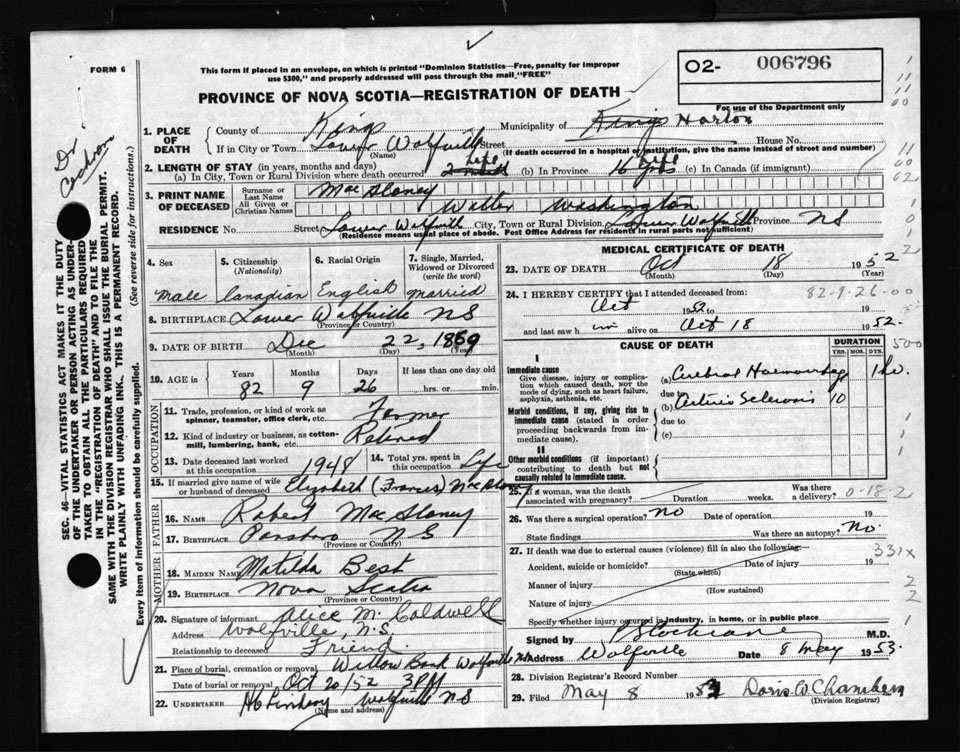 ✓
FORM 6
This form if placed in an envelope, on which is printed "Dominion Statistics—Free, penalty for improper
use $300," and properly addressed will pass through the mail "FREE"
O2- 006796
For use of the Department only
PROVINCE OF NOVA SCOTIA—REGISTRATION OF DEATH
Dr Cochran
SEC. 46—VITAL STATISTICS ACT MAKES IT THE DUTY
OF THE UNDERTAKER OR PERSON ACTING AS UNDER-
TAKER TO OBTAIN ALL THE PARTICULARS REQUIRED
IN THE "REGISTRATION OF DEATH" AND TO FILE THE
SAME WITH THE DIVISION REGISTRAR WHO SHALL ISSUE THE BURIAL PERMIT.
WRITE PLAINLY WITH UNFADING INK. THIS IS A PERMANENT RECORD.
(See reverse side for instructions.)
Every item of information should be carefully supplied.
1. PLACE OF DEATH
County of Kings Municipality of Kings Horton
If in City or Town Lower Wolfville Street House No.
(Name) (If death occurred in a hospital or institution, give the name instead of street and number)
2. LENGTH OF STAY (in years, months and days)
(a) In City, Town or Rural Division where death occurred Life (b) In Province Life (c) In Canada (if immigrant)
3. PRINT NAME OF DECEASED
Surname or Last Name MacAloney
All Given or Christian Names Walter Washington
RESIDENCE No. Street Lower Wolfville City, Town or Rural Division Lower Wolfville Province NS
(Residence means usual place of abode. Post Office Address for residents in rural parts not sufficient)
4. Sex 5. Citizenship (Nationality) 6. Racial Origin 7. Single, Married, Widowed or Divorced (write the word)
Male Canadian English Married
8. BIRTHPLACE Lower Wolfville NS
(Province or Country)
9. DATE OF BIRTH Dec 22, 1869
(Month) (Day) (Year)
10. AGE in Years Months Days If less than one day
82 9 26 hrs. or min.
OCCUPATION
11. Trade, profession, or kind of work as spinner, teamster, office clerk, etc. Farmer
12. Kind of industry or business, as cotton-mill, lumbering, bank, etc. Retired
13. Date deceased last worked at this occupation 1948 14. Total yrs. spent in this occupation Life
15. If married give name of wife or husband of deceased Elizabeth (Francis) MacAloney
FATHER
16. NAME Robert MacAloney
17. BIRTHPLACE Parsboro NS
(Province or Country)
MOTHER
18. MAIDEN NAME Matilda Best
19. BIRTHPLACE Nova Scotia
(Province or Country)
20. Signature of informant Alice M. Coldwell
Address Wolfville, N.S.
Relationship to deceased Friend
21. Place of burial, cremation or removal Willow Bank Wolfville NS
Date of burial or removal Oct 20/52 3 PM
22. UNDERTAKER Wolfville NS
(Name and address)
MEDICAL CERTIFICATE OF DEATH
23. DATE OF DEATH Oct 18 1952
(Month) (Day) (Year)
24. I HEREBY CERTIFY that I attended deceased from: 82-9-26-00
Oct 1952 to 19
and last saw h im alive on Oct 18 1952.
CAUSE OF DEATH DURATION
YRS. MOS. DYS.
I
Immediate cause
Give disease, injury or complication which caused death, not the mode of dying, such as heart failure, asphyxia, asthenia, etc.
(a) Cerebral Haemorrhage 1 hr.
due to
Morbid conditions, if any, giving rise to immediate cause (stated in order proceeding backwards from immediate cause).
(b) Arterio Sclerosis 10
due to
(c)
II
Other morbid conditions (if important) contributing to death but not causally related to immediate cause.
25. If a woman, was the death associated with pregnancy? Duration weeks. Was there a delivery? 0-18-2
26. Was there a surgical operation? No Date of operation 19
State findings Was there an autopsy? No.
27. If death was due to external causes (violence) fill in also the following:— 331x
Accident, suicide or homicide? Date of injury 19
(State which)
Manner of injury
(How sustained)
Nature of injury
Specify whether injury occurred in industry, in home, or in public place
Signed by Cochrane M.D.
Address Wolfville Date 8 May 1953.
28. Division Registrar's Record Number
29. Filed May 8 1953 Doris W. Chambers
(Division Registrar)